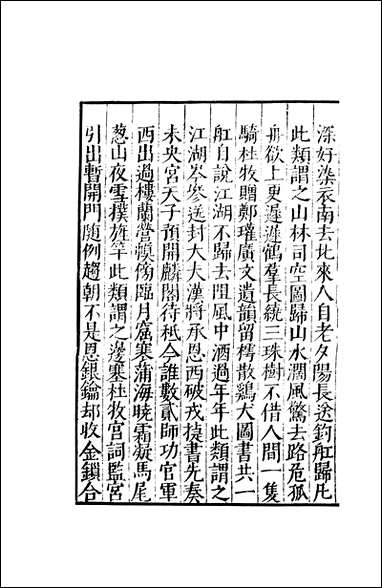 深好染衣南去北來人自老夕陽長送釣船歸凡
此類謂之山林司空圖歸山水濶風驚去路危孤
舟欲上更遲遲鶴羣長繞三珠樹不借人間一隻
騎杜牧贈鄭瓘廣文遺韻留樗散鷄犬圖書共一
船自說江湖不歸去阻風中酒過年年此類謂之
江湖岑參送封大夫漢將承恩西破戎㨗書先奏
未央宮天子預開麟閣待秖今誰數貳師功官軍
西出過樓蘭營幙傍臨月窟寒蒲海曉霜凝馬尾
葱山夜雪撲旌竿此類謂之邊寒杜牧宮詞監宮
引出暫開門随例趨朝不是恩銀鑰却收金鎖合